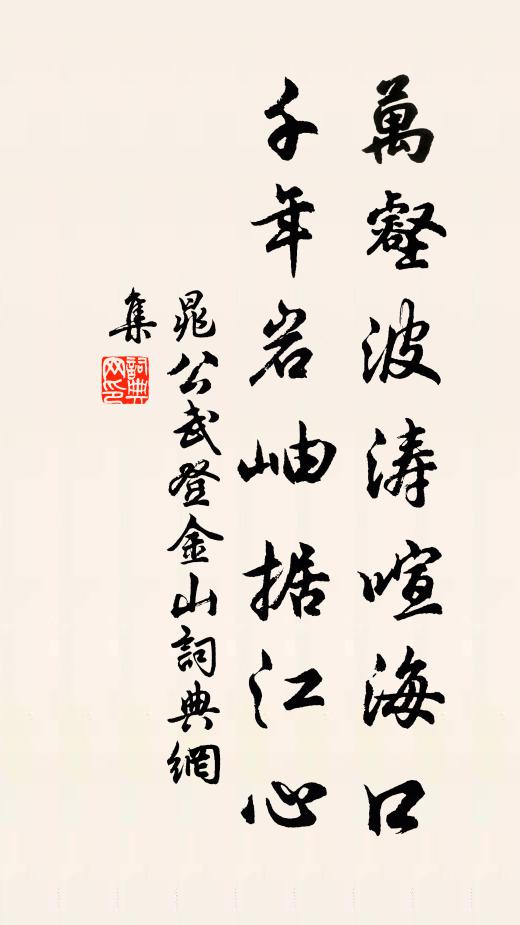 萬壑波涛喧海口
千年岩岫据江心
晁公武登金山詞典網
集
詞典
网印